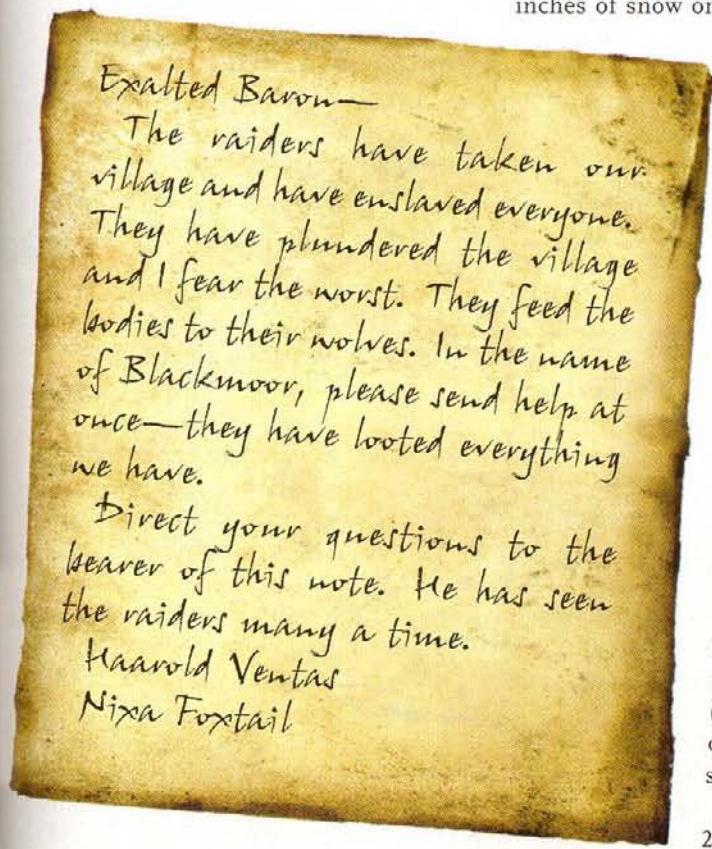 inches of snow or
Exalted Baron—
The raiders have taken our
village and have enslaved everyone.
They have plundered the village
and I fear the worst. They feed the
bodies to their wolves. In the name
of Blackmoor, please send help at
once—they have looted everything
we have.
Direct your questions to the
bearer of this note. He has seen
the raiders many a time.
Haarold Ventas
Nixa Foxtail
2